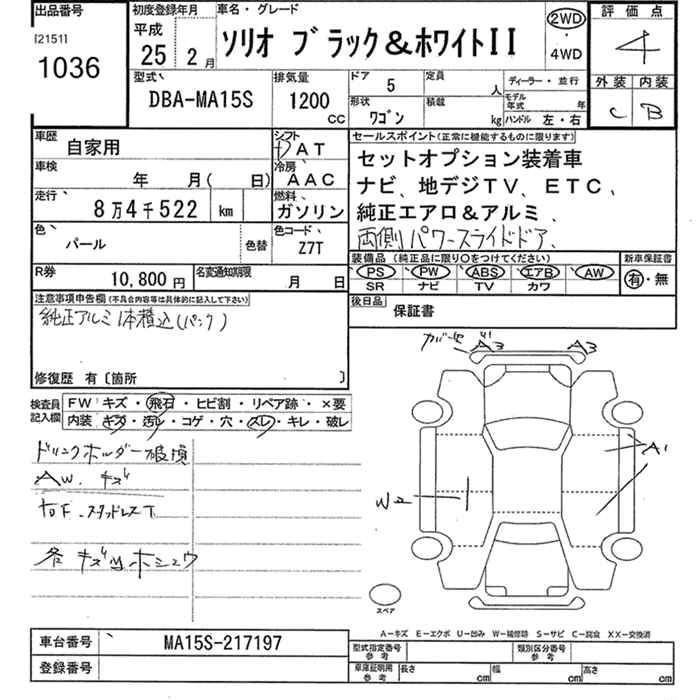 出品番号
[2151]
1036
初度登録年月
平成
25 2月
車名・グレード
ソリオ ブラック&ホワイトII
2WD
・
4WD
評価点
4
外装 内装
C B
型式
DBA-MA15S
排気量
1200
CC
ドア 5
定員 人
形状 ワゴン
積載 kg
ディーラー・並行
モデル年式 年
ハンドル 左・右
車歴 自家用
シフト AT
車検 年 月( 日)
冷房 AAC
走行 8万4千522 km
燃料 ガソリン
色 パール 色替
色コード Z7T
R券 10,800円
名変通知期限 月 日
セールスポイント(正常に機能するものに限ります)
セットオプション装着車
ナビ、地デジTV、ETC、
純正エアロ&アルミ、
両側パワースライドドア、
装備品 (純正品に限り○をつけてください)
PS PW ABS エアB AW
SR ナビ TV カワ
新車保証書
有・無
後日品
保証書
注意事項申告欄(不具合内容等は具体的に記入して下さい)
純正アルミ1本積込(パンク)
修復歴 有〔箇所 〕
検査員記入欄
FW キズ・飛石・ヒビ割・リペア跡・×要
内装 キズ・汚レ・コゲ・穴・スレ・キレ・破レ
ドリンクホルダー破損
AW.キズ
スタッドレスT
各キズ凹ホシュウ
カバー
A3 A3
A1
W2
スペア
A-キズ E-エクボ U-凹み W-補修跡 S-サビ C-腐食 XX-交換済
車台番号 MA15S-217197
登録番号
型式指定番号 参考
類別区分番号 参考
車庫証明用 参考
長さ cm 幅 cm 高さ cm